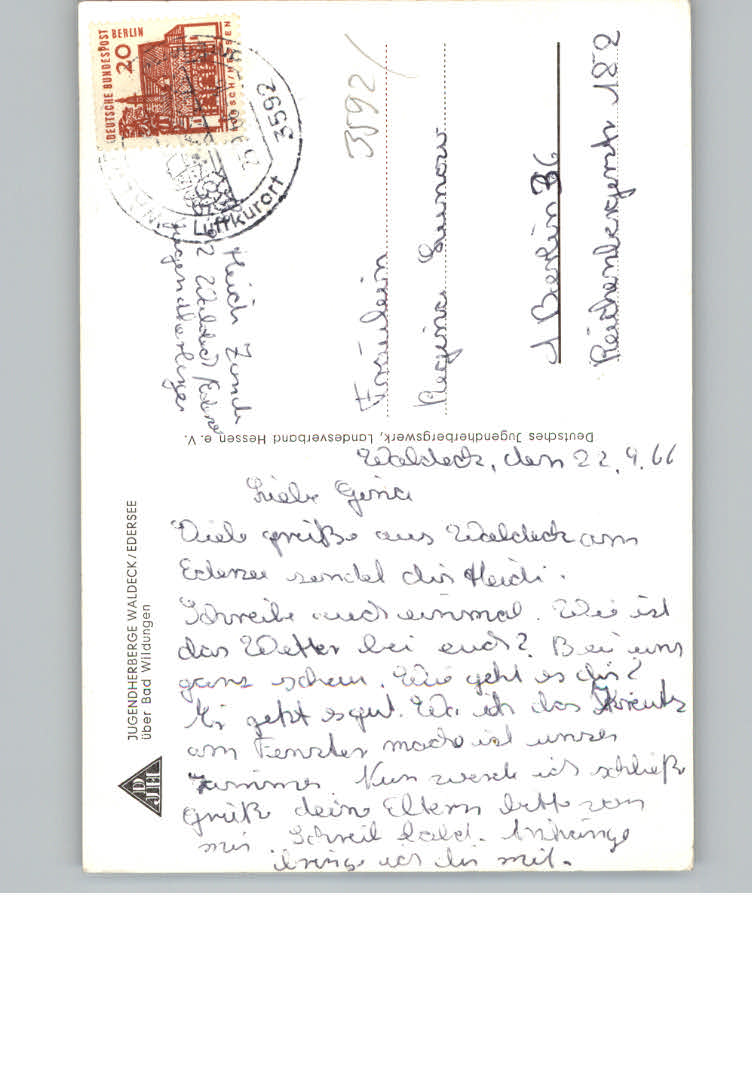 DEUTSCHE BUNDESPOST BERLIN
20
LORSCH/HESSEN
3592
Luftkurort
Heidi
Waldeck/Eders
Jugendherberge
3592
Fräulein
Regina
1 Berlin 36
Reichenbergerstr 182
Deutsches Jugendherbergswerk, Landesverband Hessen e. V.
JUGENDHERBERGE WALDECK/EDERSEE
über Bad Wildungen
DJH
Waldeck, den 22.9.66
Liebe Gina
Viele grüße aus Waldeck am
Edersee sendet dir Heidi.
Schreibe auch einmal. Wie ist
das Wetter bei euch? Bei uns
ganz schön. Wie geht es dir?
Mir geht es gut. Wo ich das Kreutz
am Fenster mache ist unser
Zimmer. Nun werde ich schließ
grüß deine Eltern bitte von
mir. Schreib bald. Anhänge
bringe ich dir mit.